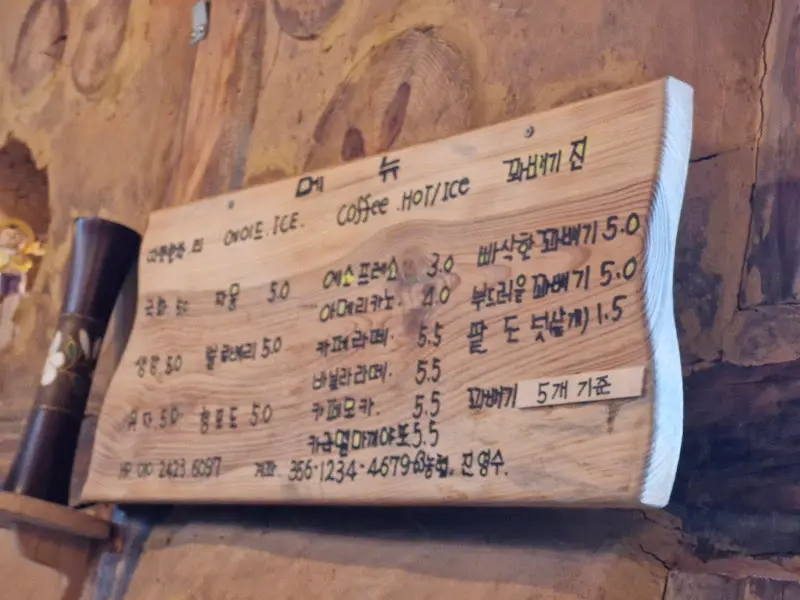 메 뉴
에이드.ICE. Coffee.HOT/ICE 꽈배기 진
5.0 자몽 5.0 에스프레소 3.0 빠삭한 꽈배기 5.0
아메리카노. 4.0 부드러운 꽈배기 5.0
생강 5.0 블루베리 5.0 카페라떼. 5.5 팥 도넛(낱개) 1.5
바닐라라떼. 5.5
유자 5.0 청포도 5.0 카페모카. 5.5 꽈배기 5개 기준
카라멜마끼야또 5.5
HP 010 2423.6097 계좌. 356-1234-4679-63 농협. 진영수.